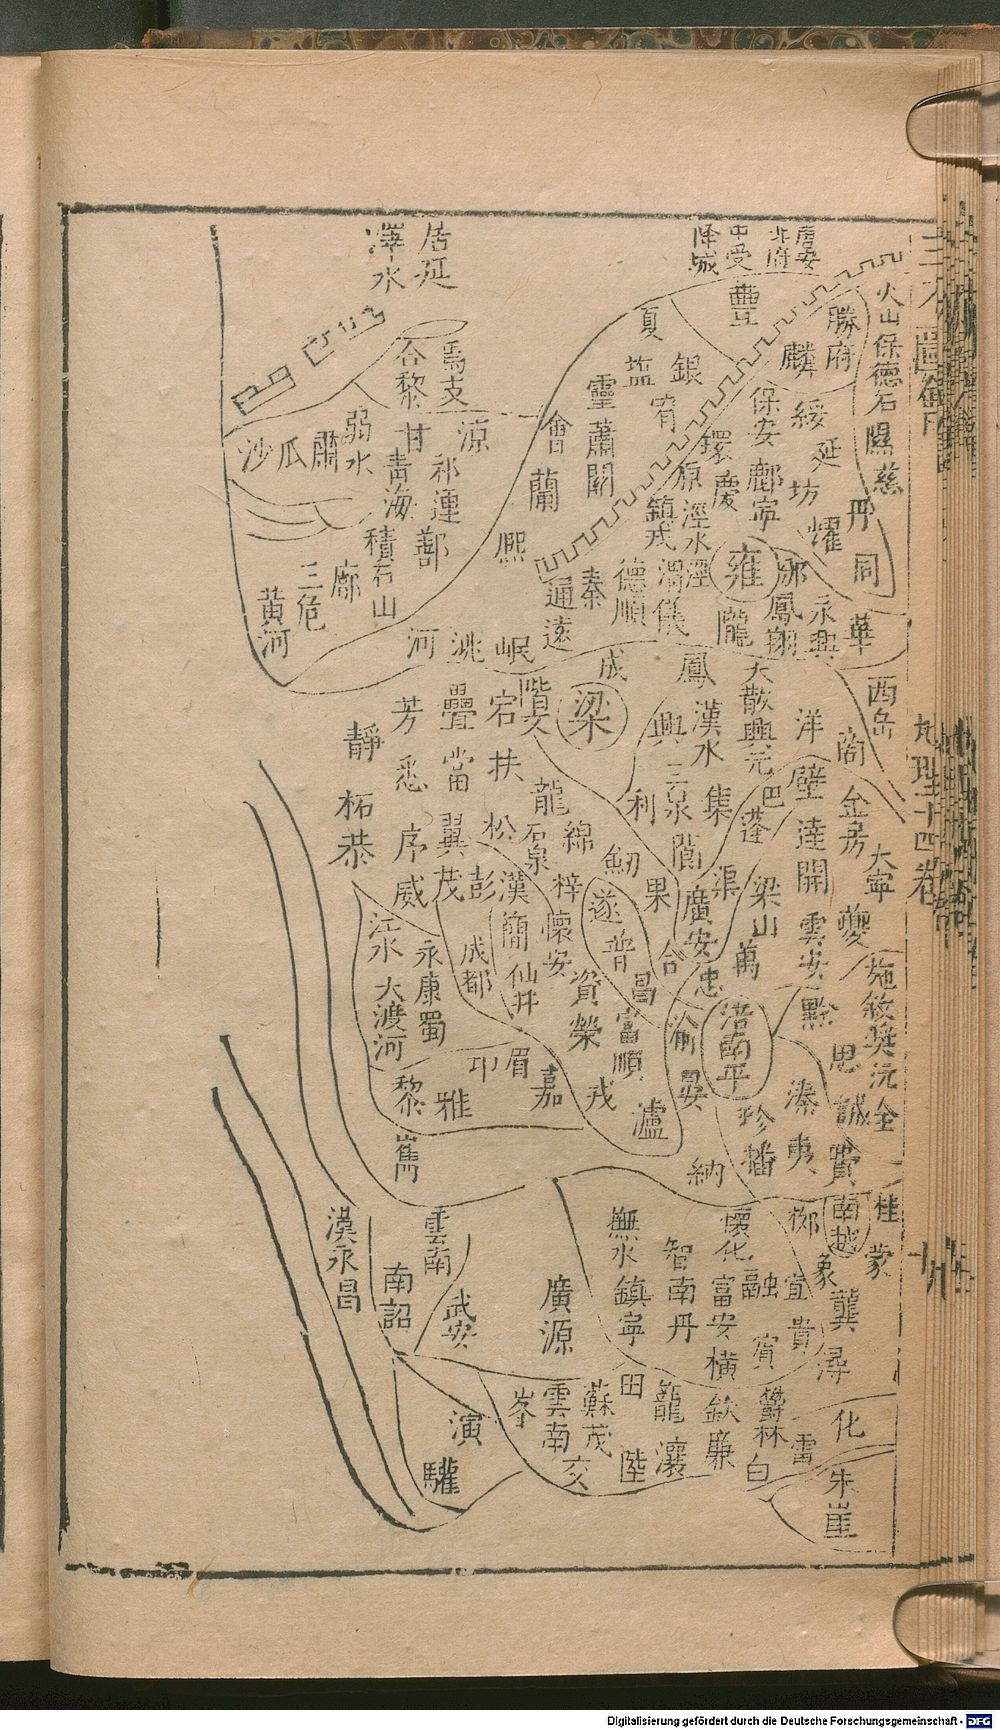 三才圖會
地理十四卷
唐安
北府
中受
降城
居延
澤水
火山
保德
石
隰
慈
丹
同
華
西岳
勝府
麟
豐
夏
塩
宥
銀
綏
延
保安
鄜
坊
寧
耀
環
慶
原
涇水
涇
鎮戎
渭
儀
德順
靈
蕭關
會
蘭
熈
通遠
秦
雍
邠
鳳翔
永興
隴
合黎
焉支
弱水
甘
涼
沙
瓜
肅
青海
祁連
積石山
鄯
廓
三危
黄河
河
洮
岷
成
鳳
大散
興元
漢水
興
三泉
洋
商
金
房
大寧
階
文
梁
宕
疊
芳
靜
當
悉
柘
恭
扶
松
翼
序
威
茂
彭
龍
石泉
綿
漢
梓
懷安
簡
仙井
成都
江水
永康
蜀
大渡河
利
集
巴
蓬
壁
達
開
閬
渠
果
廣安
梁山
雲安
夔
萬
忠
合
遂
普
昌
資
榮
富順
渝
涪
南平
黔
施
敘
奨
沅
思
誠
全
邛
眉
嘉
戎
瀘
黎
雅
嶲
珍
播
溱
夷
納
賓
南越
桂
蒙
象
龔
潯
漢永昌
雲南
南詔
武安
廣源
撫水
鎮寧
智
南丹
懷化
富安
融
宜
柳
貴
賓
橫
田
籠
瀼
欽
廉
鬱林
白
雷
化
朱崖
峯
雲南
蘇茂
交
陸
演
驩
Digitalisierung gefördert durch die Deutsche Forschungsgemeinschaft - DFG